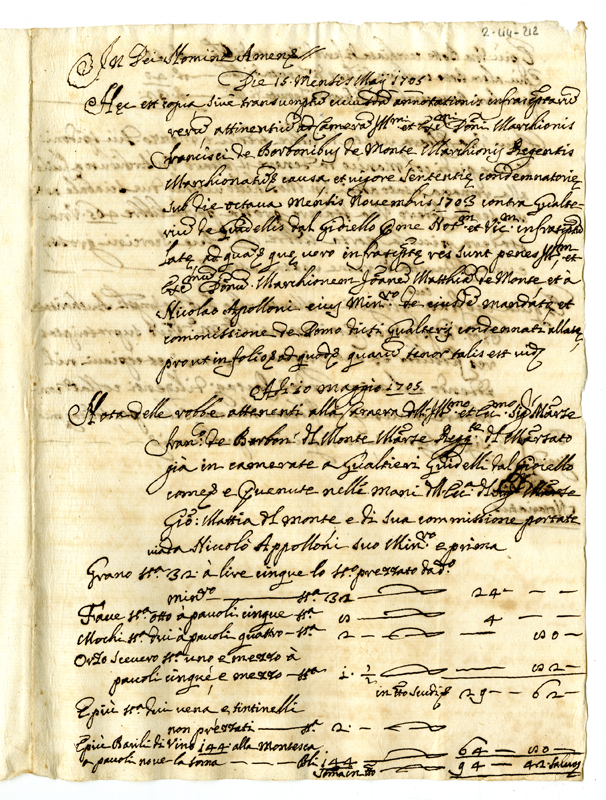 2-44-212
In Dei Nomine Amen
Die 15 Mensis Maij 1705
Hec est copia sive transumptu annotationis infrascriptaru
reru attinentiu ad Camera Ill.mi et Dom Marchionis
Francisci de Borbonibus de Monte Marchionis Regentis
Marchionatus causa et vigore sententie condemnatorie
sub die octava Mensis Novembris 1703 contra Gualte-
riu de Guidellis dal Gioiello
late que vero infrascripte res sunt penes Ill.m et
Marchionem Joane Matthia de Monte et a
Nicolao Apolloni eius Min.ro de eiusde mandato et
commissione de Domo dicti Gualterij condemnati allate
prout in folio quare tenor talis est
Adi 10 Maggio 1705
Nota delle robbe attenenti alla Camera
Fran.o de Borbon dl Monte Marse Regg.te dl Marsato
già in camerate a Gualtieri Guidelli dal Gioiello
come e pervenute nelle mani Marse
Gio: Mattia dl Monte e di sua commissione portate
via da Niccolò Appolloni suo Min.ro e prima
Grano st.a 32 à lire cinque lo st.o prezzato dad.o
min.ro — st.a 32 24 - —
Fave st.a otto à pavoli cinque st.a 8 4 - —
Mochi st.a dui à pavoli quattro - st.a 2 — 80 —
Orzo Scevero st.a uno e mezzo à
pavoli cinque e mezzo — st.a 1. 1/2 — 82 —
in tto scudi 29 - 62 -
E più st.a dui vena e tintinelli
non prezzati — st.a 2 -
E più Barili di vino 144 alla Montesca
a pavoli nove la soma — Bli 144 64 — 80 —
Soma in tto 94 — 42